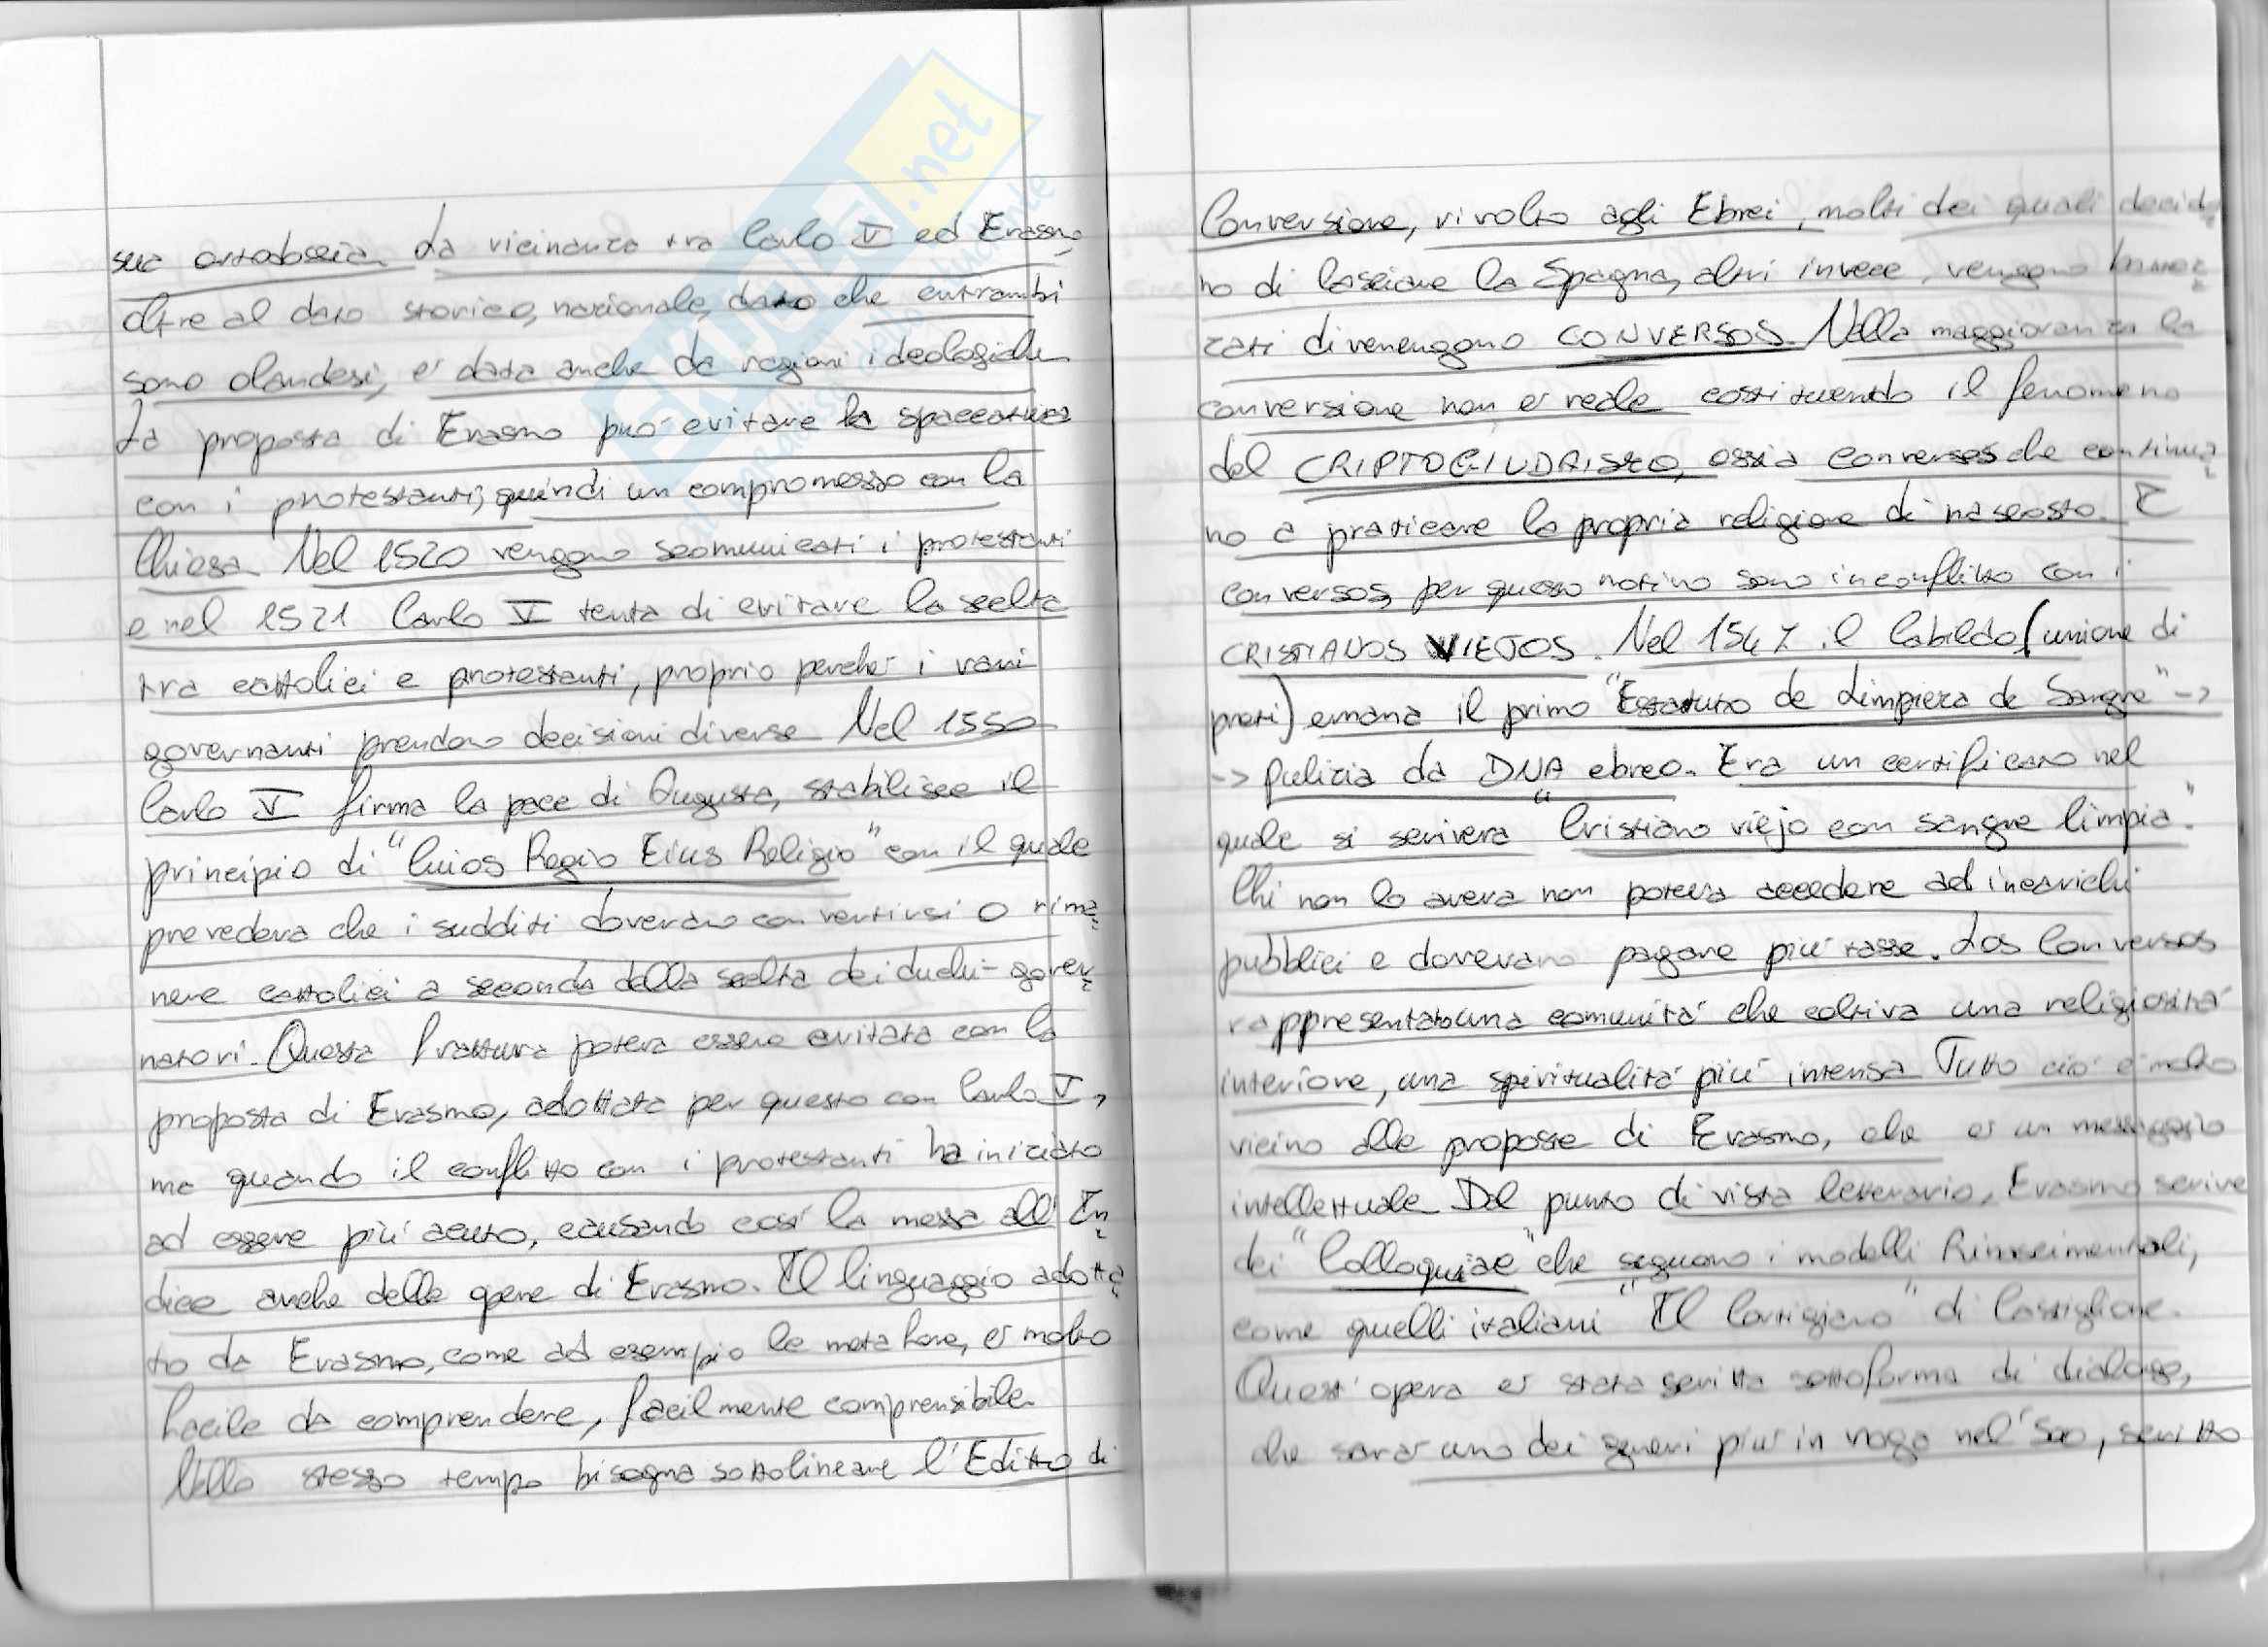 sua ortodossia. La vicinanza tra Carlo V ed Erasmo,
oltre al dato storico, nazionale, dato che entrambi
sono olandesi, e' data anche da ragioni ideologiche
La proposta di Erasmo puo' evitare la spaccatura
con i protestanti, quindi un compromesso con la
Chiesa. Nel 1520 vengono scomunicati i protestanti
e nel 1521 Carlo V tenta di evitare la scelta
tra cattolici e protestanti, proprio perche' i vari
governanti prendono decisioni diverse. Nel 1550
Carlo V firma la pace di Augusta, stabilisce il
principio di "Cuios Regio Eius Religio" con il quale
prevedeva che i sudditi dovevano convertirsi o rima
nere cattolici a seconda della scelta dei duchi-gover
natori. Questa frattura poteva essere evitata con la
proposta di Erasmo, adottata per questo con Carlo V,
ma quando il conflitto con i protestanti ha iniziato
ad essere piu' acuto, causando cosi' la messa all'In
dice anche delle opere di Erasmo. Il linguaggio adotta
to da Erasmo, come ad esempio le metafore, e' molto
facile da comprendere, facilmente comprensibile.
Nello stesso tempo bisogna sottolineare l'Editto di
Conversione, rivolto agli Ebrei, molti dei quali decido
no di lasciare la Spagna, altri invece, vengono
zati divenengono CONVERSOS. Nella maggioranza la
conversione non e' reale costituendo il fenomeno
del CRIPTOGIUDAISMO, ossia conversos che continua
no a praticare la propria religione di nascosto. I
conversos, per questo motivo sono in conflitto con i
CRISTIANOS VIEJOS. Nel 1547 il Cabildo (unione di
preti) emana il primo "Estatuto de Limpieza de Sangre" ->
-> Pulizia da DNA ebreo. Era un certificato nel
quale si scriveva "Cristiano viejo con sangre limpia".
Chi non lo aveva non poteva accedere ad incarichi
pubblici e dovevano pagare piu' tasse. Los Conversos
rappresentato una comunita' che coltiva una religiosita'
interiore, una spiritualita' piu' intensa. Tutto cio' e' molto
vicino alle proposte di Erasmo, che e' un messaggio
intellettuale. Dal punto di vista letterario, Erasmo scrive
dei "Colloquiae" che seguono i modelli Rinascimentali,
come quelli italiani "Il Cortigiano" di Castiglione.
Quest'opera e' stata scritta sottoforma di dialogo,
che sara' uno dei generi piu' in voga nel '500, scritto